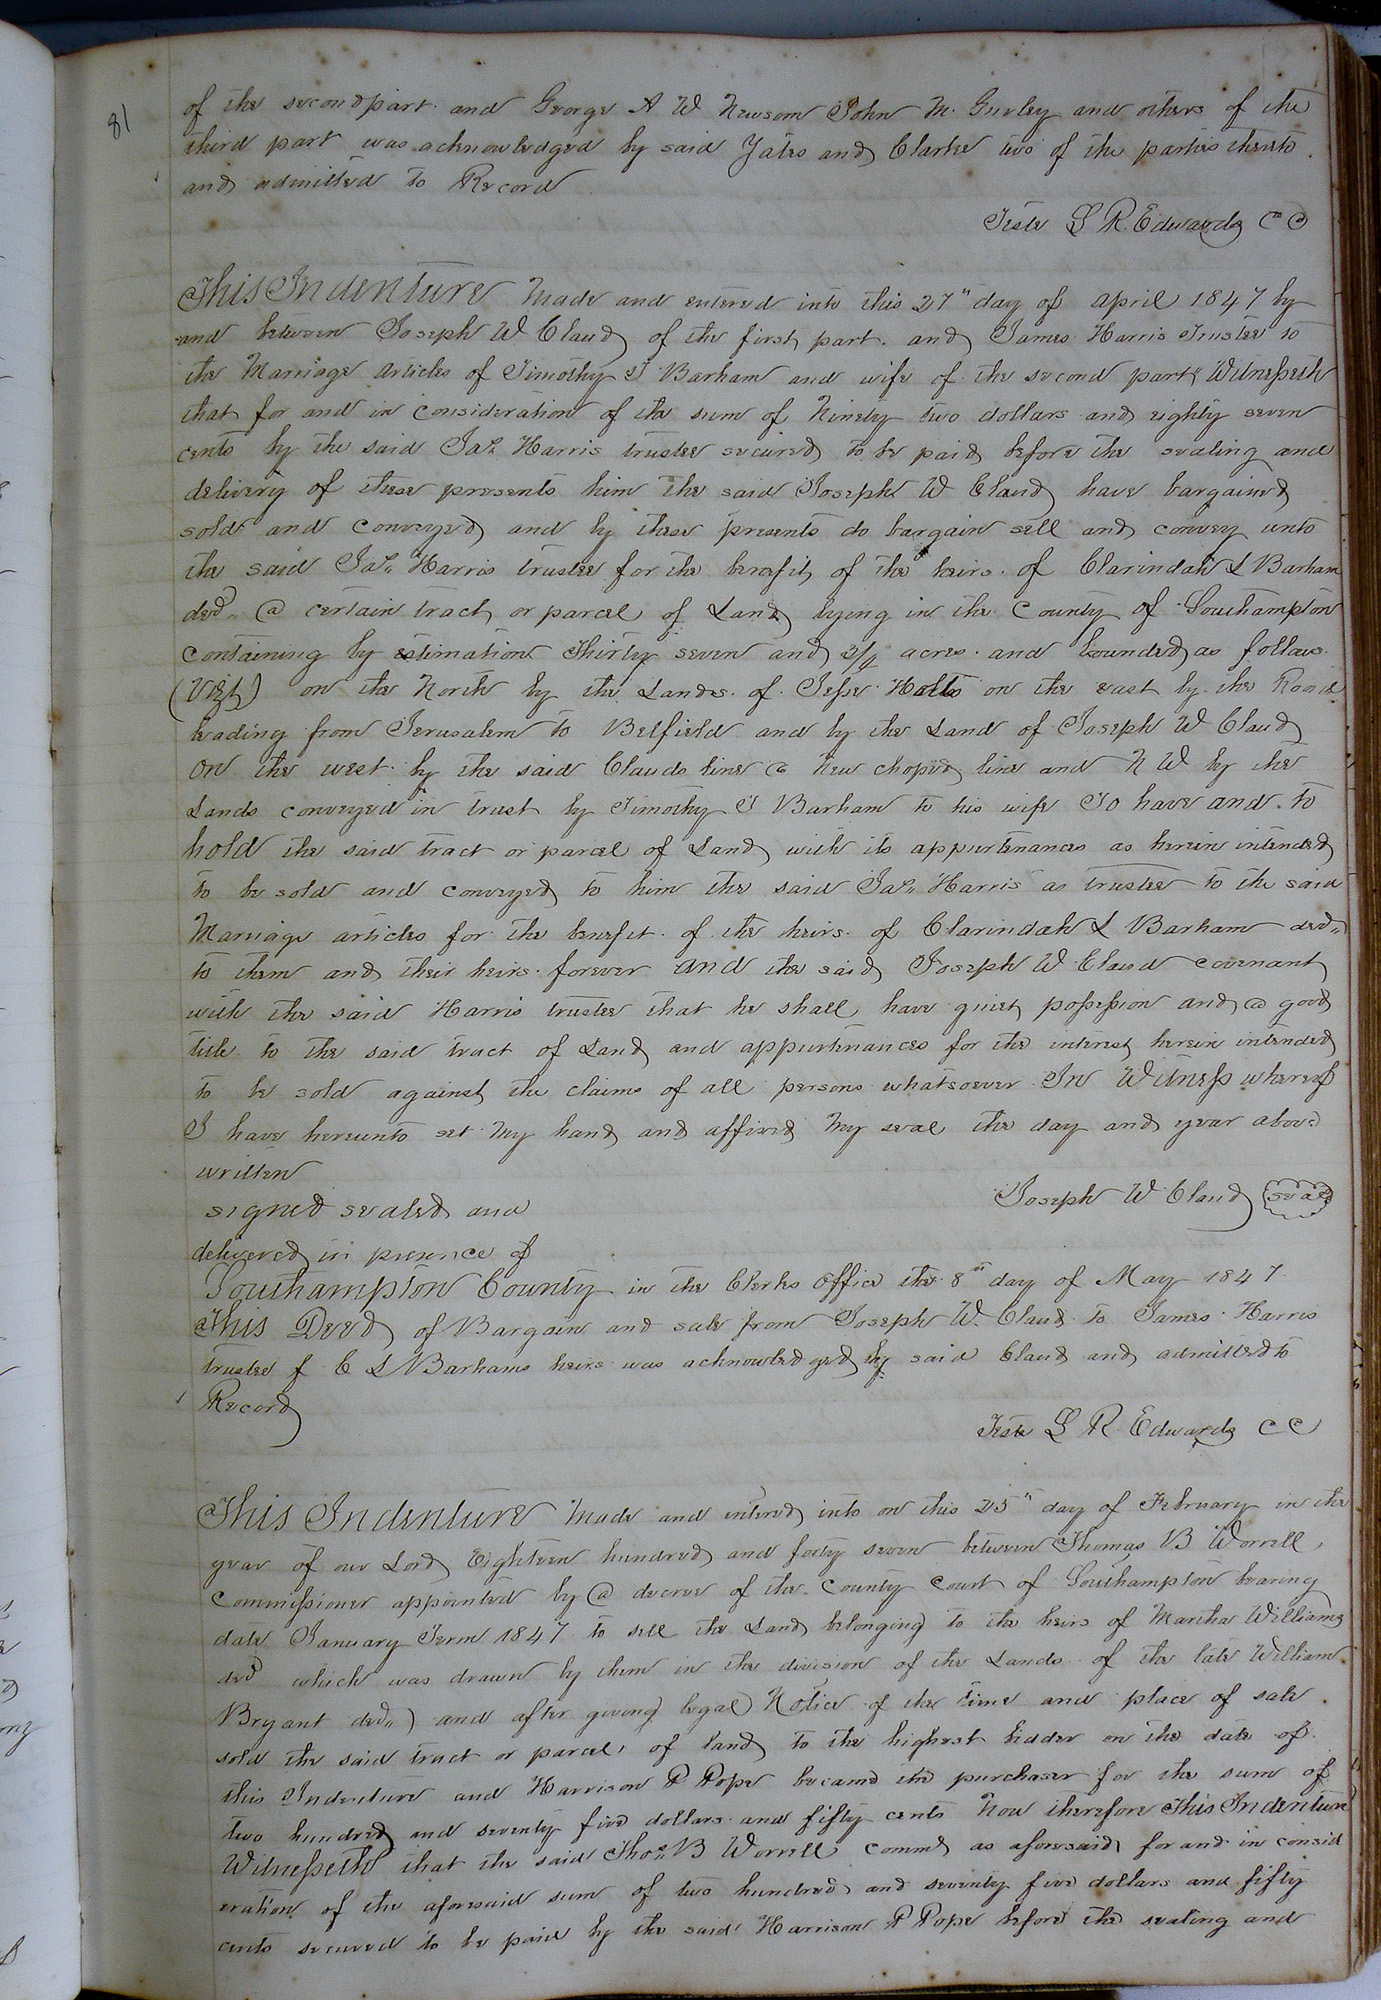 81
of the second part and George A W Newsom John M. Gurley and others of the
third part was acknowledged by said Yates and Clarke two of the parties thereto
and admitted to Record
Teste L R. Edwards CC
This Indenture Made and entered into this 27" day of april 1847 by
and between Joseph W Claud of the first part. and James Harris Trustee to
the Marriage articles of Timothy T Barham and wife of the second part" Witnesseth
that for and in consideration of the sum of Ninety two dollars and eighty seven
cents by the said Jas. Harris trustee secured to be paid before the sealing and
delivery of these presents him the said Joseph W Claud have bargained
sold and conveyed and by these presents do bargain sell and convey unto
the said Jas. Harris trustee for the benefit of the heirs. of Clarindah L Barham
decd" a certain tract or parcel of Land lying in the County of Southampton
containing by estimation Thirty seven and 3/4 acres. and bounded as follows.
(Vizt) on the North by the Lands. of Jesse Holts on the east by the Road
leading from Jerusalem to Belfield and by the Land of Joseph W Claud
on the west by the said Clauds line a New choped line and N W by the
Lands conveyed in trust by Timothy T Barham to his wife To have and to
hold the said tract or parcel of Land with its appurtenances as herein intended
to be sold and conveyed to him the said Jas. Harris as trustee to the said
Marriage articles for the benefit of the heirs. of Clarindah L Barham decd"
to them and their heirs forever and the said Joseph W Claud covenant
with the said Harris trustee that he shall have quiet possession and a good
title to the said tract of Land and appurtenances for the interest herein intended
to be sold against the claims of all persons whatsoever In Witness whereof
I have hereunto set My hand and affixed My seal the day and year above
written
Joseph W Claud seal
signed sealed and
delivered in presence of
Southampton County in the Clerks Office the 8th day of May 1847
This Deed of Bargain and sale from Joseph W. Claud to James Harris
trustee of C L Barhams heirs was acknowledged by said Claud and admitted to
Record
Teste L R. Edwards CC
This Indenture Made and entered into on this 25" day of February in the
year of our Lord Eighteen hundred and forty seven between Thomas B Worrell,
Commissioner appointed by a decree of the County Court of Southampton bearing
date January Term 1847 to sell the Land belonging to the heirs of Martha Williams
decd which was drawn by them in the division of the Lands of the late William
Bryant decd") and after giving legal Notice of the time and place of sale
sold the said tract or parcel of land to the highest bidder on the date of
this Indenture and Harrison P Pope became the purchaser for the sum of
two hundred and seventy five dollars and fifty cents Now therefore This Indenture
Witnesseth that the said Thos. B Worrell commd as aforesaid for and in consid
eration of the aforesaid sum of two hundred and seventy five dollars and fifty
cents secured to be paid by the said Harrison P Pope before the sealing and